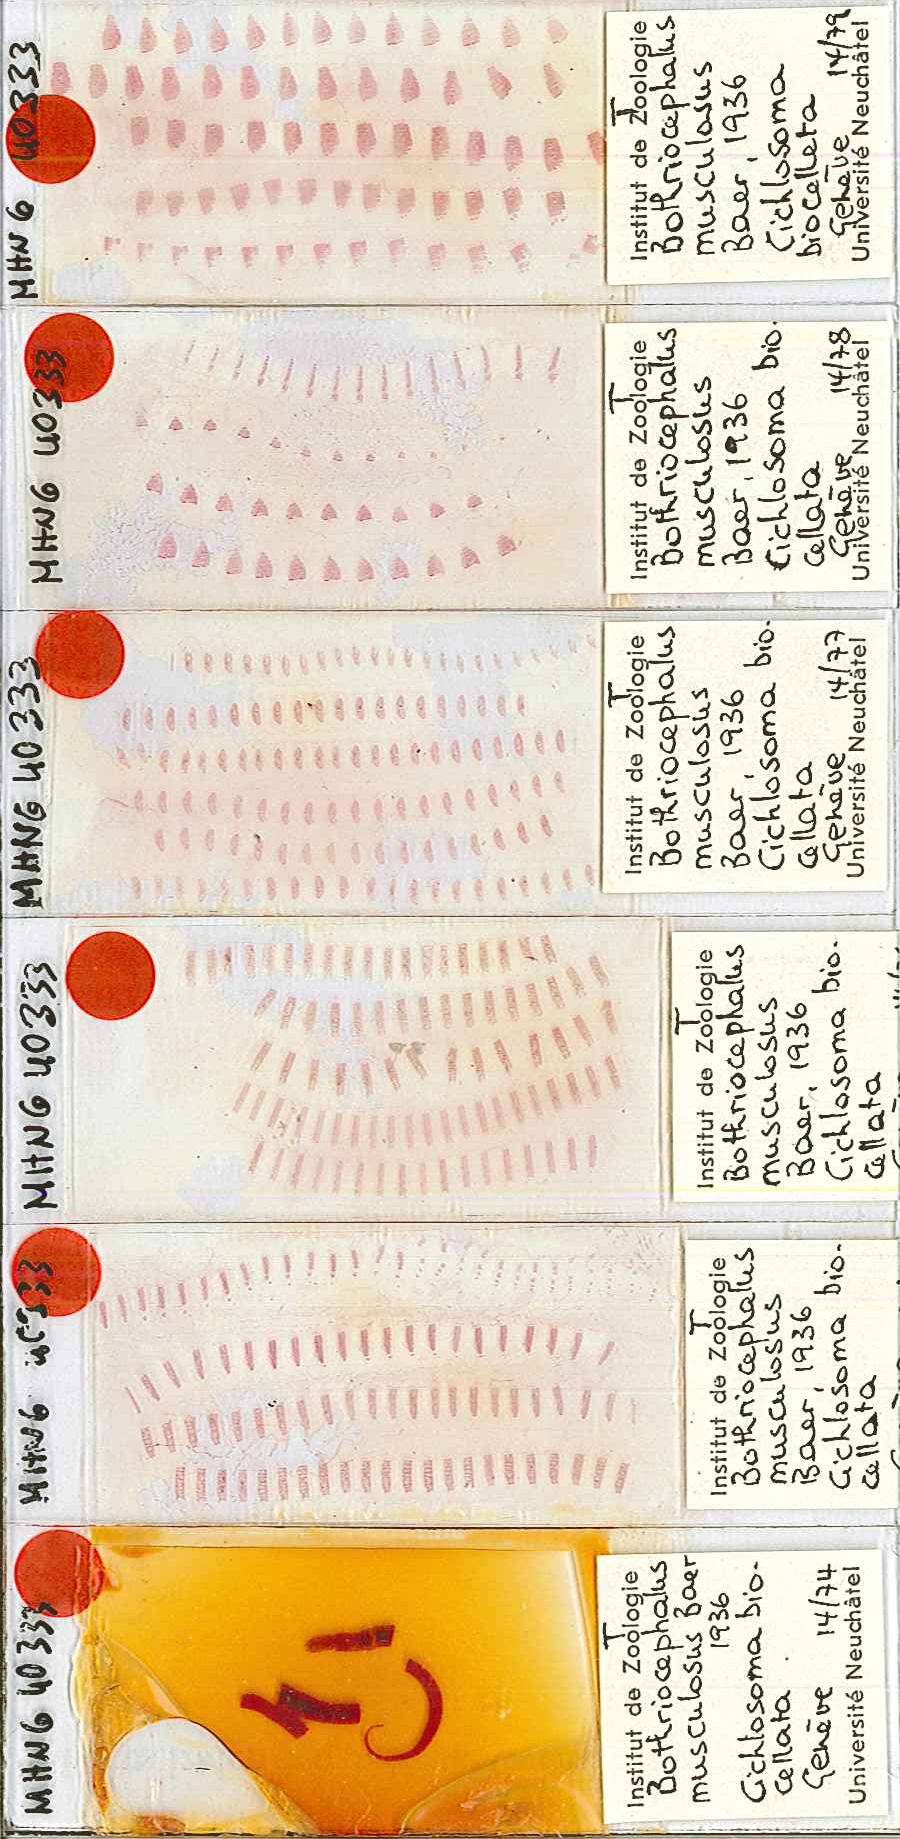 MHNG 40333
Institut de Zoologie
T
Bothriocephalus
musculosus
Baer, 1936
Cichlosoma
biocelleta
Genève 14/79
Université Neuchâtel
MHNG 40333
Institut de Zoologie
T
Bothriocephalus
musculosus
Baer, 1936
Cichlosoma bio-
cellata
Genève 14/78
Université Neuchâtel
MHNG 40333
Institut de Zoologie
T
Bothriocephalus
musculosus
Baer, 1936
Cichlosoma bio-
cellata
Genève 14/77
Université Neuchâtel
MHNG 40333
Institut de Zoologie
T
Bothriocephalus
musculosus
Baer, 1936
Cichlosoma bio-
cellata
MHNG 40333
Institut de Zoologie
T
Bothriocephalus
musculosus
Baer, 1936
Cichlosoma bio-
cellata
MHNG 40333
Institut de Zoologie
T
Bothriocephalus
musculosus Baer
1936
Cichlosoma bio-
cellata
Genève 14/74
Université Neuchâtel